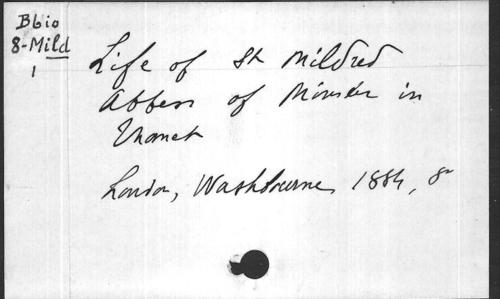 Bbio
8-Mild
1
Life of St Mildred
Abbess of Minster in
Thanet
London, Washbourne, 1884, 8º